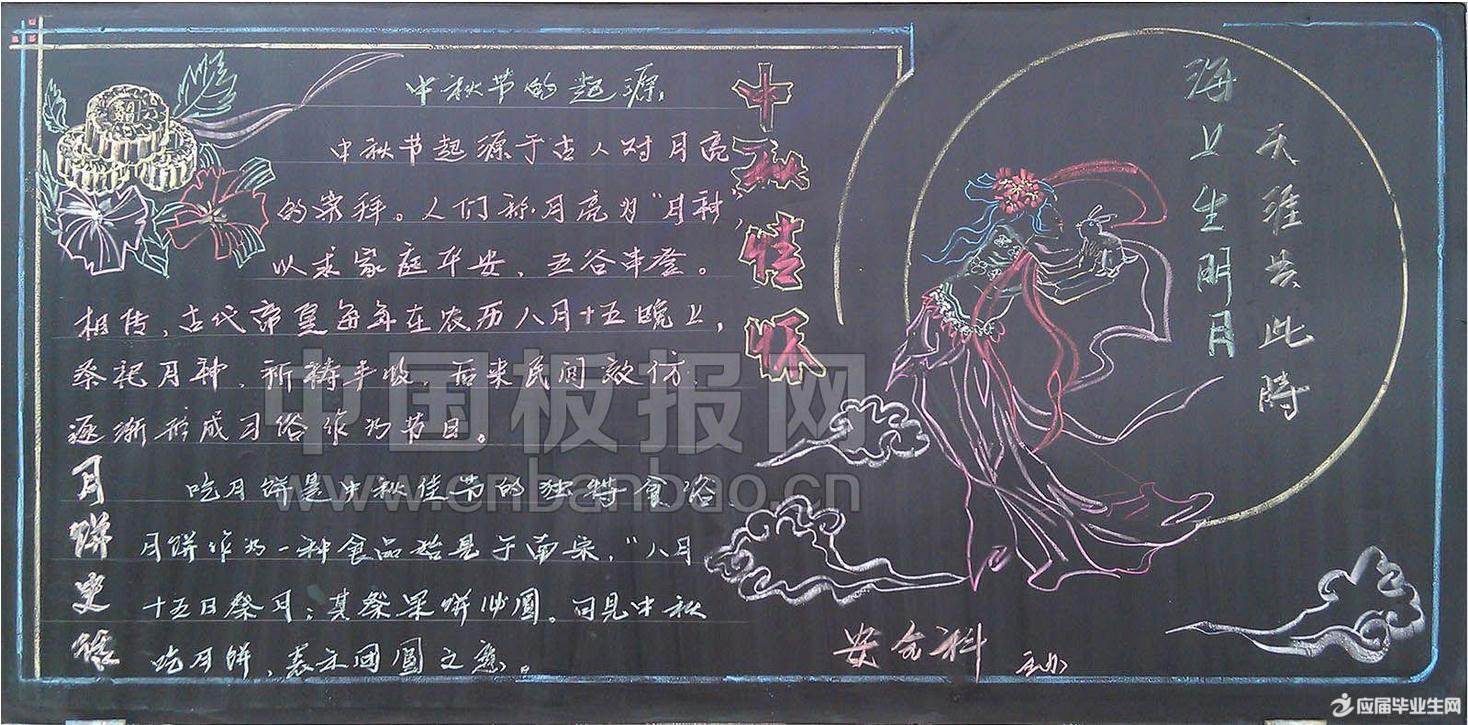 中秋节的起源
中秋节起源于古人对月亮
的崇拜。人们称月亮为“月神”,
以求家庭平安、五谷丰登。
相传,古代帝皇每年在农历八月十五晚上,
祭祀月神、祈祷丰收,后来民间效仿、
逐渐形成习俗作为节日。
吃月饼是中秋佳节的独特食俗、
月饼作为一种食品始是于南宋,“八月
十五日祭月;其祭果饼必圆。可见中秋
吃月饼,表示团圆之意。
月饼史话
中秋佳节
海上生明月
天涯共此時
安全科 主办
中国板报网
www.cnbanbao.cn
应届毕业生网